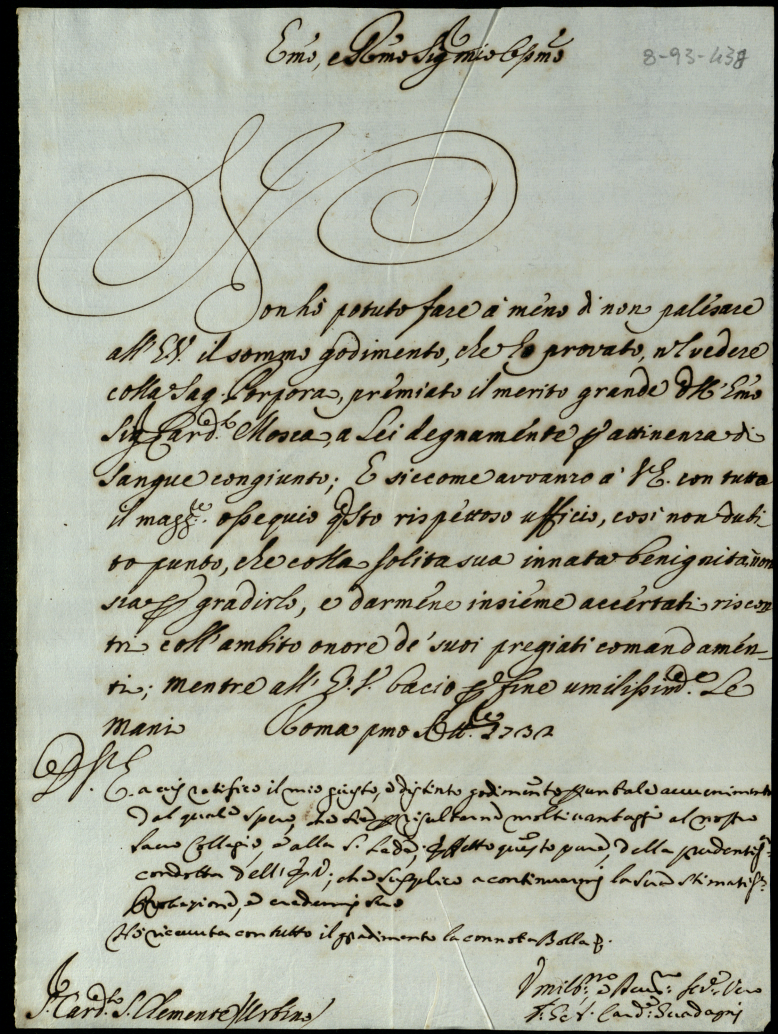 Emo, e Rmo Sig mio Ossmo
8-93-438
Non hò potuto fare à meno di non palesare
all' E.V. il sommo godimento, che hò provato, nel vedere
colla Sag. Porpora, premiato il merito grande dell' Emo
Sig. Card.le Mosca, a Lei degnamente p attinenza di
sangue congiunto; E siccome avvanzo à V.E. con tutto
il magg.re ossequio qsto rispettoso ufficio, così non dubi
to punto, che colla solita sua innata benignità, non
sia p gradirlo, e darmene insieme accertati riscon
tri coll' ambito onore de' suoi pregiati comandamen-
ti; mentre all' E.V. bacio p fine umilissim.te Le
mani Roma pmo 1732
D. V. E.
a cui ratifico il mio giusto, e distinto godimento p un tale avvenimento
dal quale spero, che sia p risultarne molti vantaggi al nostro
Sacro Collegio, e alla S. Sede, effetto questo pure, della prudentiss.
condotta dell' E.V.; che supplico a continuarmi la sua stimatiss.
e credermi
Hò ricevuta con tutto il gradimento la connota Bolla
S. Card.le S. Clemente Urbino
Umiliss.mo e Dev.mo Ser. Vero
Card. Guadagni